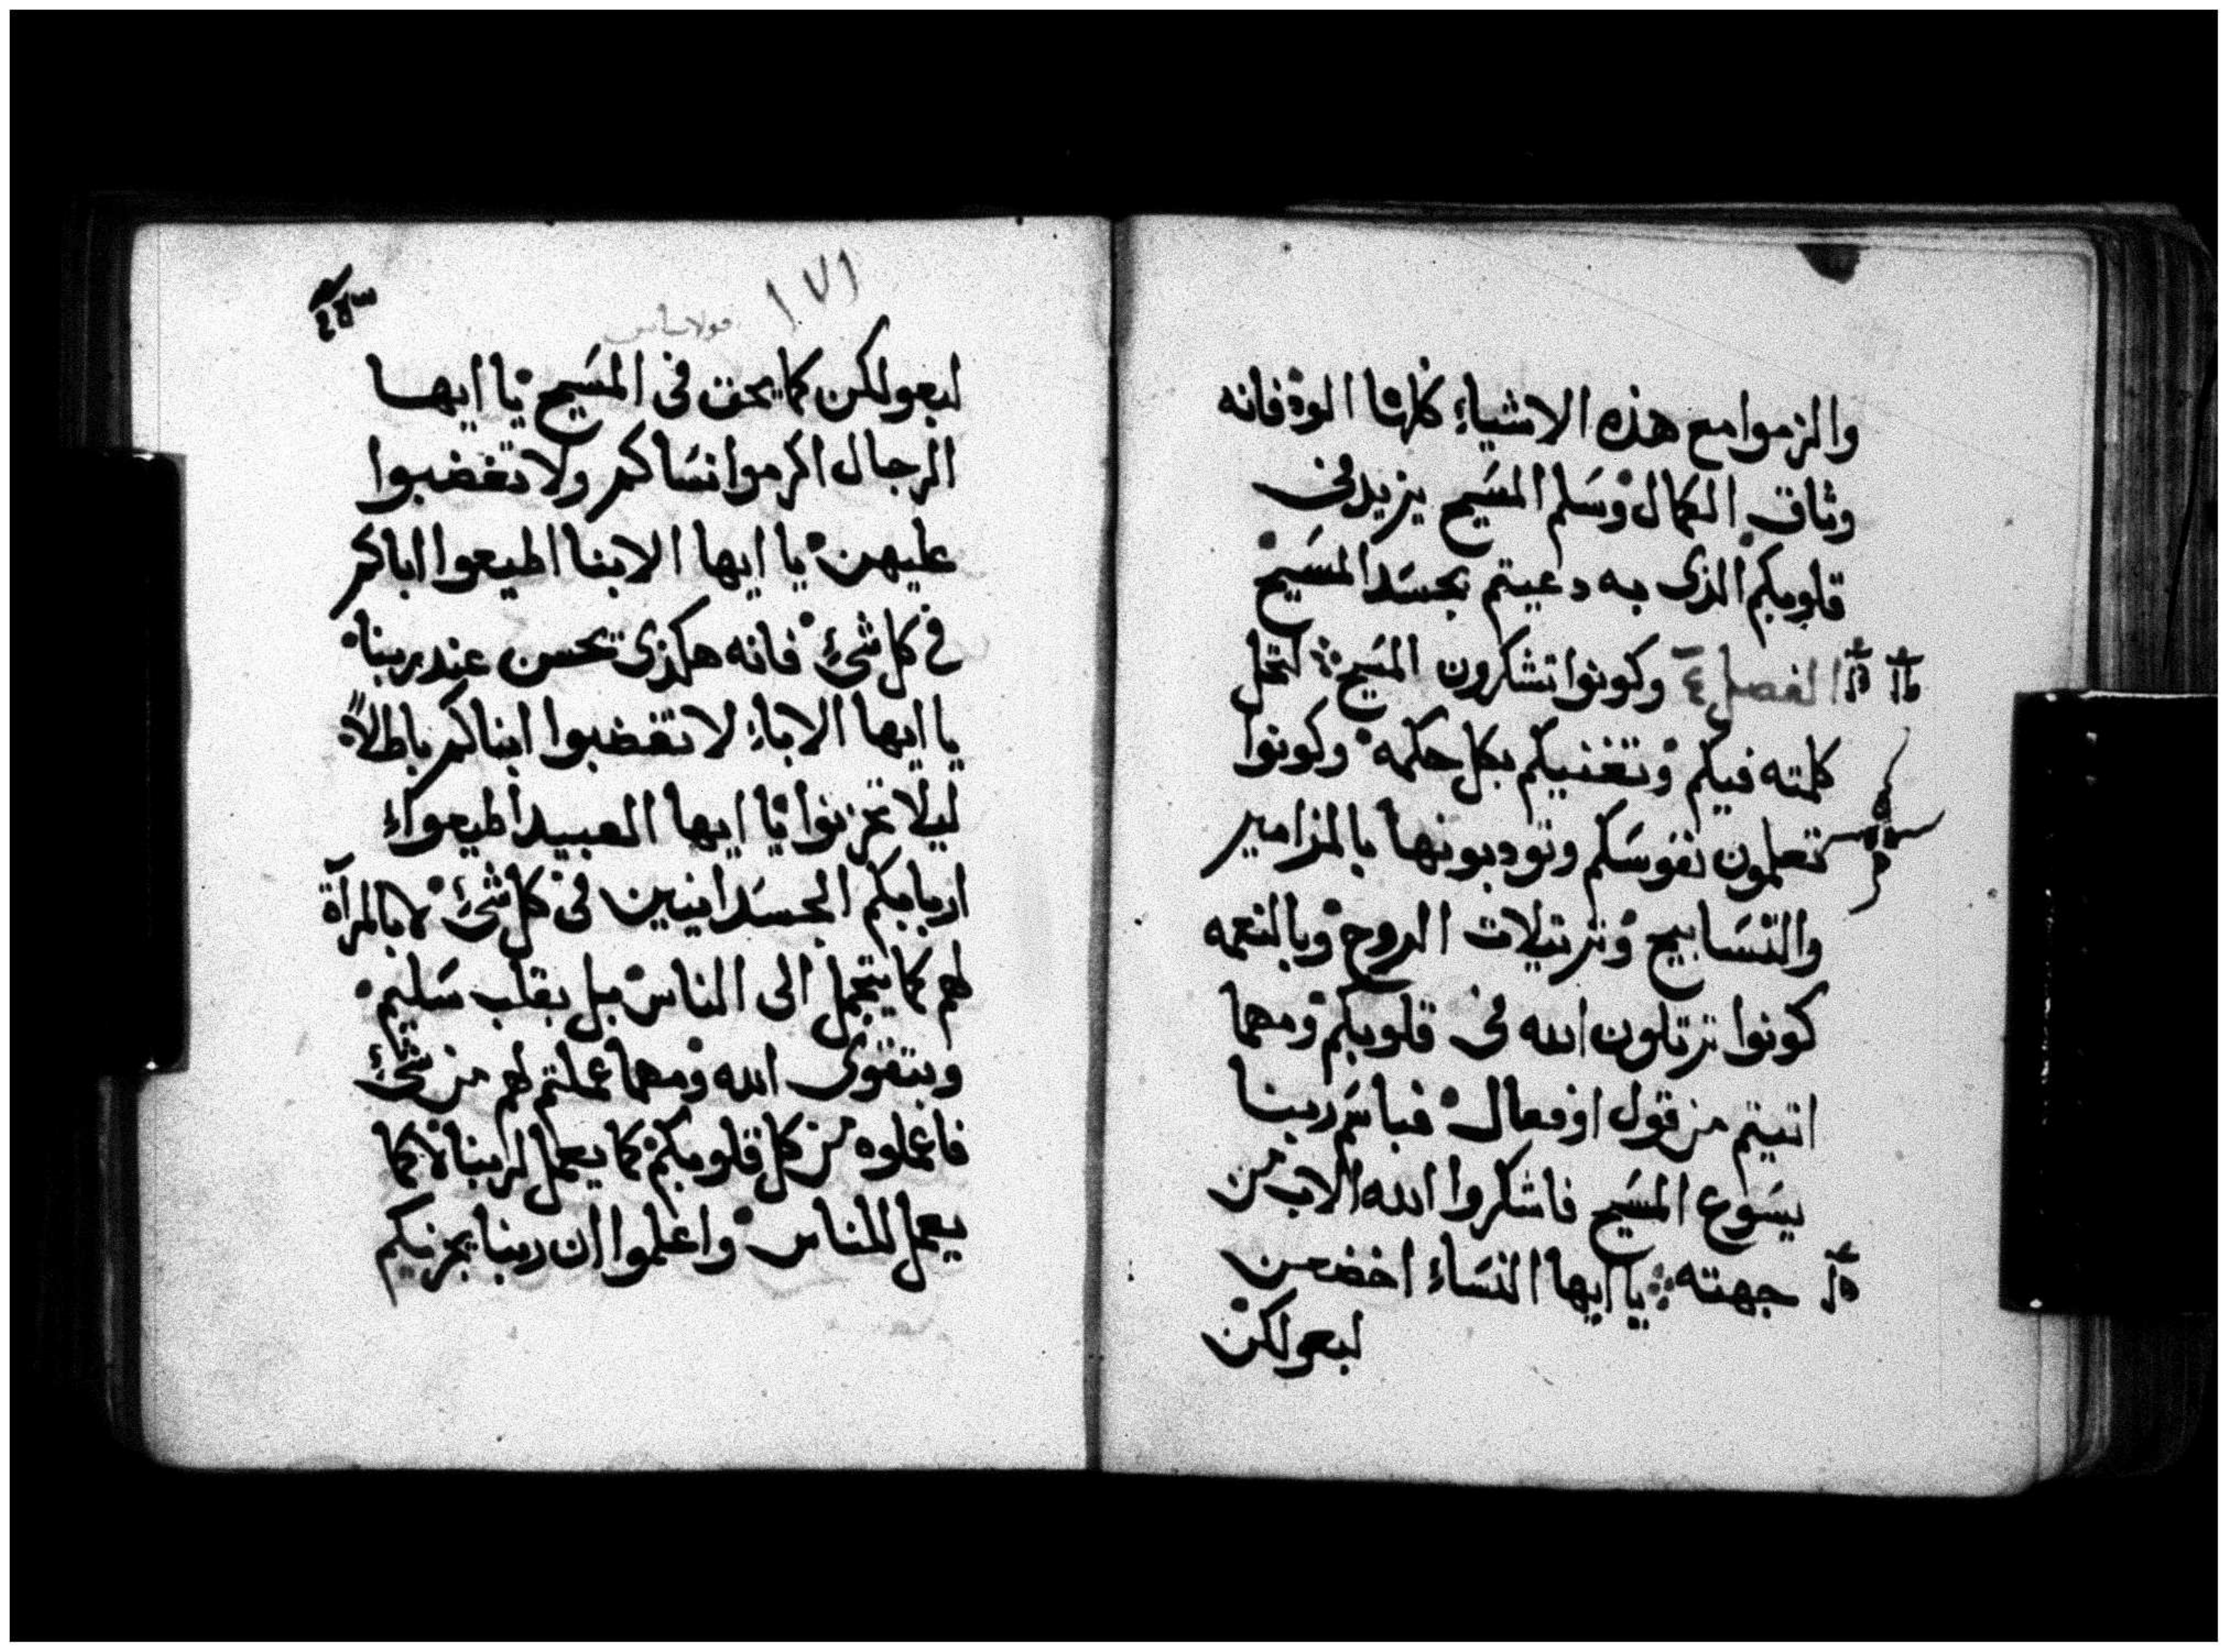 والزموا مع هذه الاشياء كلها الود فانه
وثاق الكمال وسلم المسيح يزيد في
قلوبكم الذى به دعيتم بجسد المسيح
الفصل ٤ وكونوا تشكرون المسيح لتحل
كلمته فيكم وتغنيكم بكل حكمه وكونوا
تعلمون نفوسكم وتودبونها بالمزامير
والتسابيح وترتيلات الروح وبالنعمه
كونوا ترتلون الله في قلوبكم ومهما
اتيتم من قول او فعال فباسم ربنا
يسوع المسيح فاشكروا الله الاب من
جهته يا ايها النساء اخضعن
لبعولكن
١٧١
لبعولكن كما يحق في المسيح يا ايها
الرجال اكرموا نساكم ولا تغضبوا
عليهن يا ايها الابنا اطيعوا اباكم
في كل شئ فانه هكذى يحسن عند ربنا
يا ايها الاباء لا تغضبوا ابناكم باطلاً
ليلا تحزنوا يا ايها العبيد اطيعواء
اربابكم الجسدانيين في كل شئ لا بالمرآة
لهم كما يتجمل الى الناس بل بقلب سليم
وبتقوى الله ومهما عملتم لهم من شئ
فاعملوه من كل قلوبكم كما يعمل لربنا لا كما
يعمل للناس واعلموا ان ربنا يجزيكم